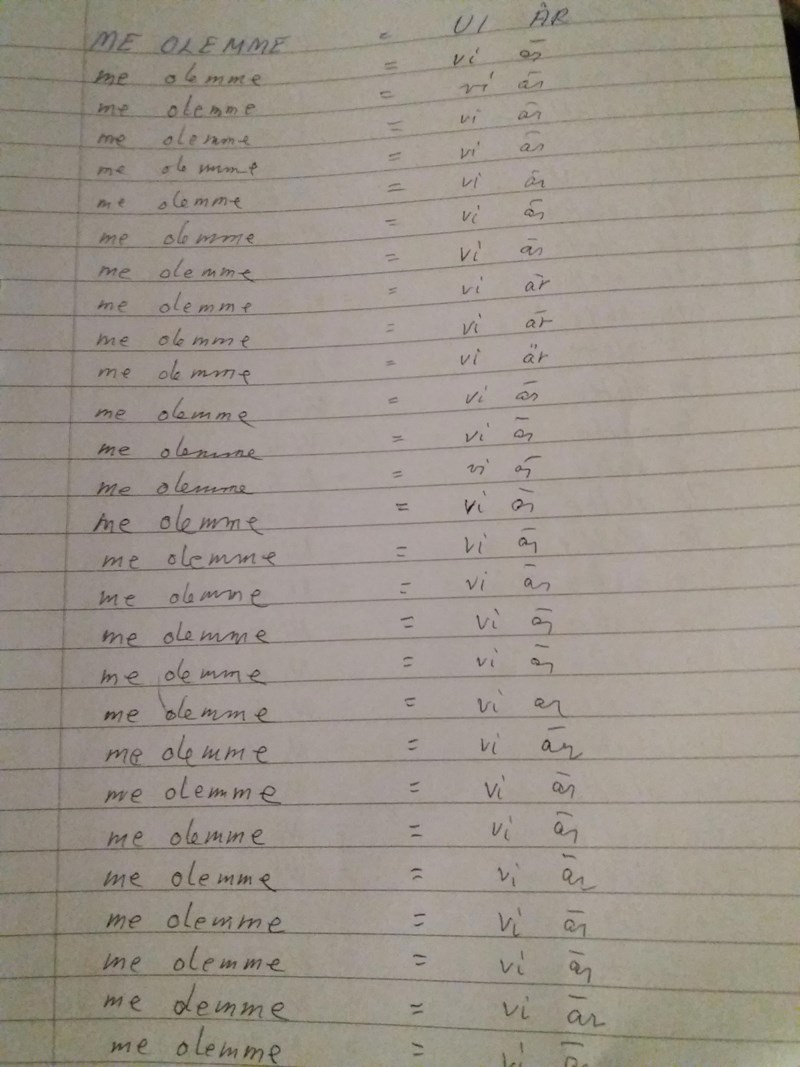 ME OLEMME = VI ÄR
me olemme = vi är
me olemme = vi är
me olemme = vi är
me olemme = vi är
me olemme = vi är
me olemme = vi är
me olemme = vi är
me olemme = vi är
me olemme = vi är
me olemme = vi är
me olemme = vi är
me olemme = vi är
me olemme = vi är
me olemme = vi är
me olemme = vi är
me olemme = vi är
me olemme = vi är
me olemme = vi är
me olemme = vi ar
me olemme = vi är
me olemme = vi är
me olemme = vi är
me olemme = vi är
me olemme = vi är
me olemme = vi är
me olemme = vi är
me olemme = vi är